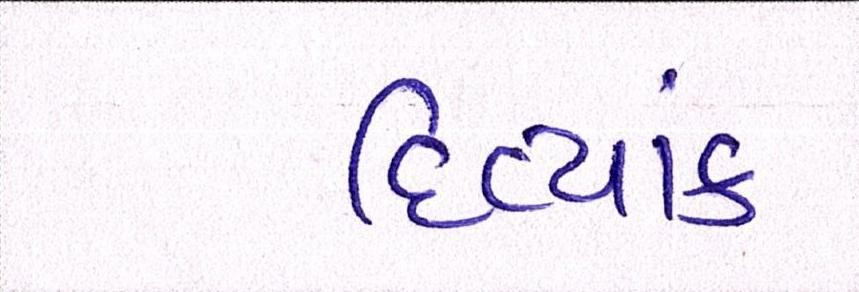 દિવ્યાંક